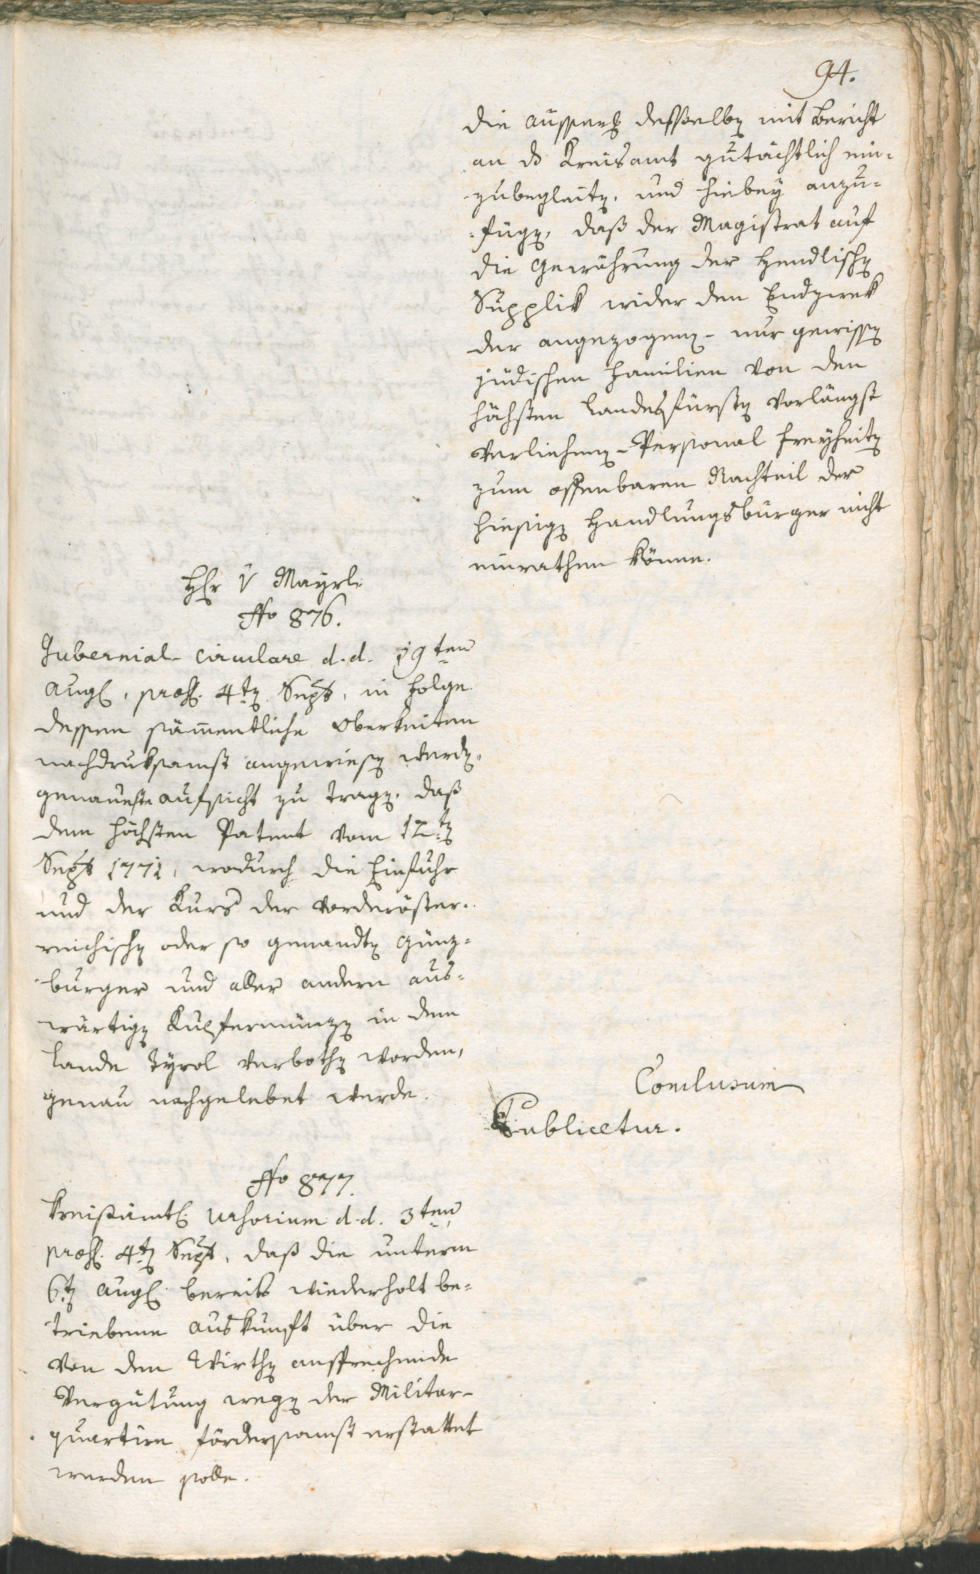 94.
die ausserg desselben mit Bericht
an das Kreisamt gutächtlich ein-
zubegleiten, und hiebey anzu-
fügen, daß der Magistrat auf
die Gewährung der Hendlischen
Supplik wider den Endzwek
der angezogenen - nur gewissen
jüdischen Familien von den
höchsten Landesfürsten vorlängst
verliehenen - Personal Freyheiten
zum offenbaren Nachteil der
hiesigen Handlungsbürger nicht
einrathen könne.
Hr v Mayrl:
No 876.
Gubernial-Circulare d.d. 19ten
Aug, pras. 4ten Sept, in Folge
dessen sämmentliche Oberkeiten
nachdruksamst angewiesen werden,
genaueste aufsicht zu tragen, daß
dem höchsten Patent vom 12ten
Sept 1771, wodurch die Einfuhr
und der Kurs der vorderöster-
reichischen oder so genandten Günz-
burger und aller andern aus-
wärtigen Kupfermünzen in dem
Lande Tyrol verbothen worden,
genau nachgelebet werde.
Conclusum
Publicetur.
No 877.
Kreisämtl Urhorium d.d. 3ten,
pras. 4ten Sept, daß die unterm
6ten Aug bereits wiederholt be-
triebene auskunft über die
von den Wirthen ansprechende
Vergütung wegen der Militar-
quartire fördersamst erstattet
werden solle.